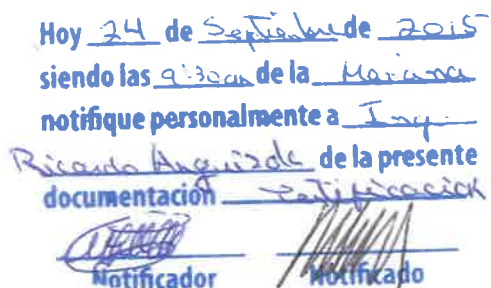 Hoy 24 de Septiembre de 2015
siendo las 9:30am de la Mañana
notifique personalmente a Ing.
Ricardo Anguizola de la presente
documentación
Notificador Notificado